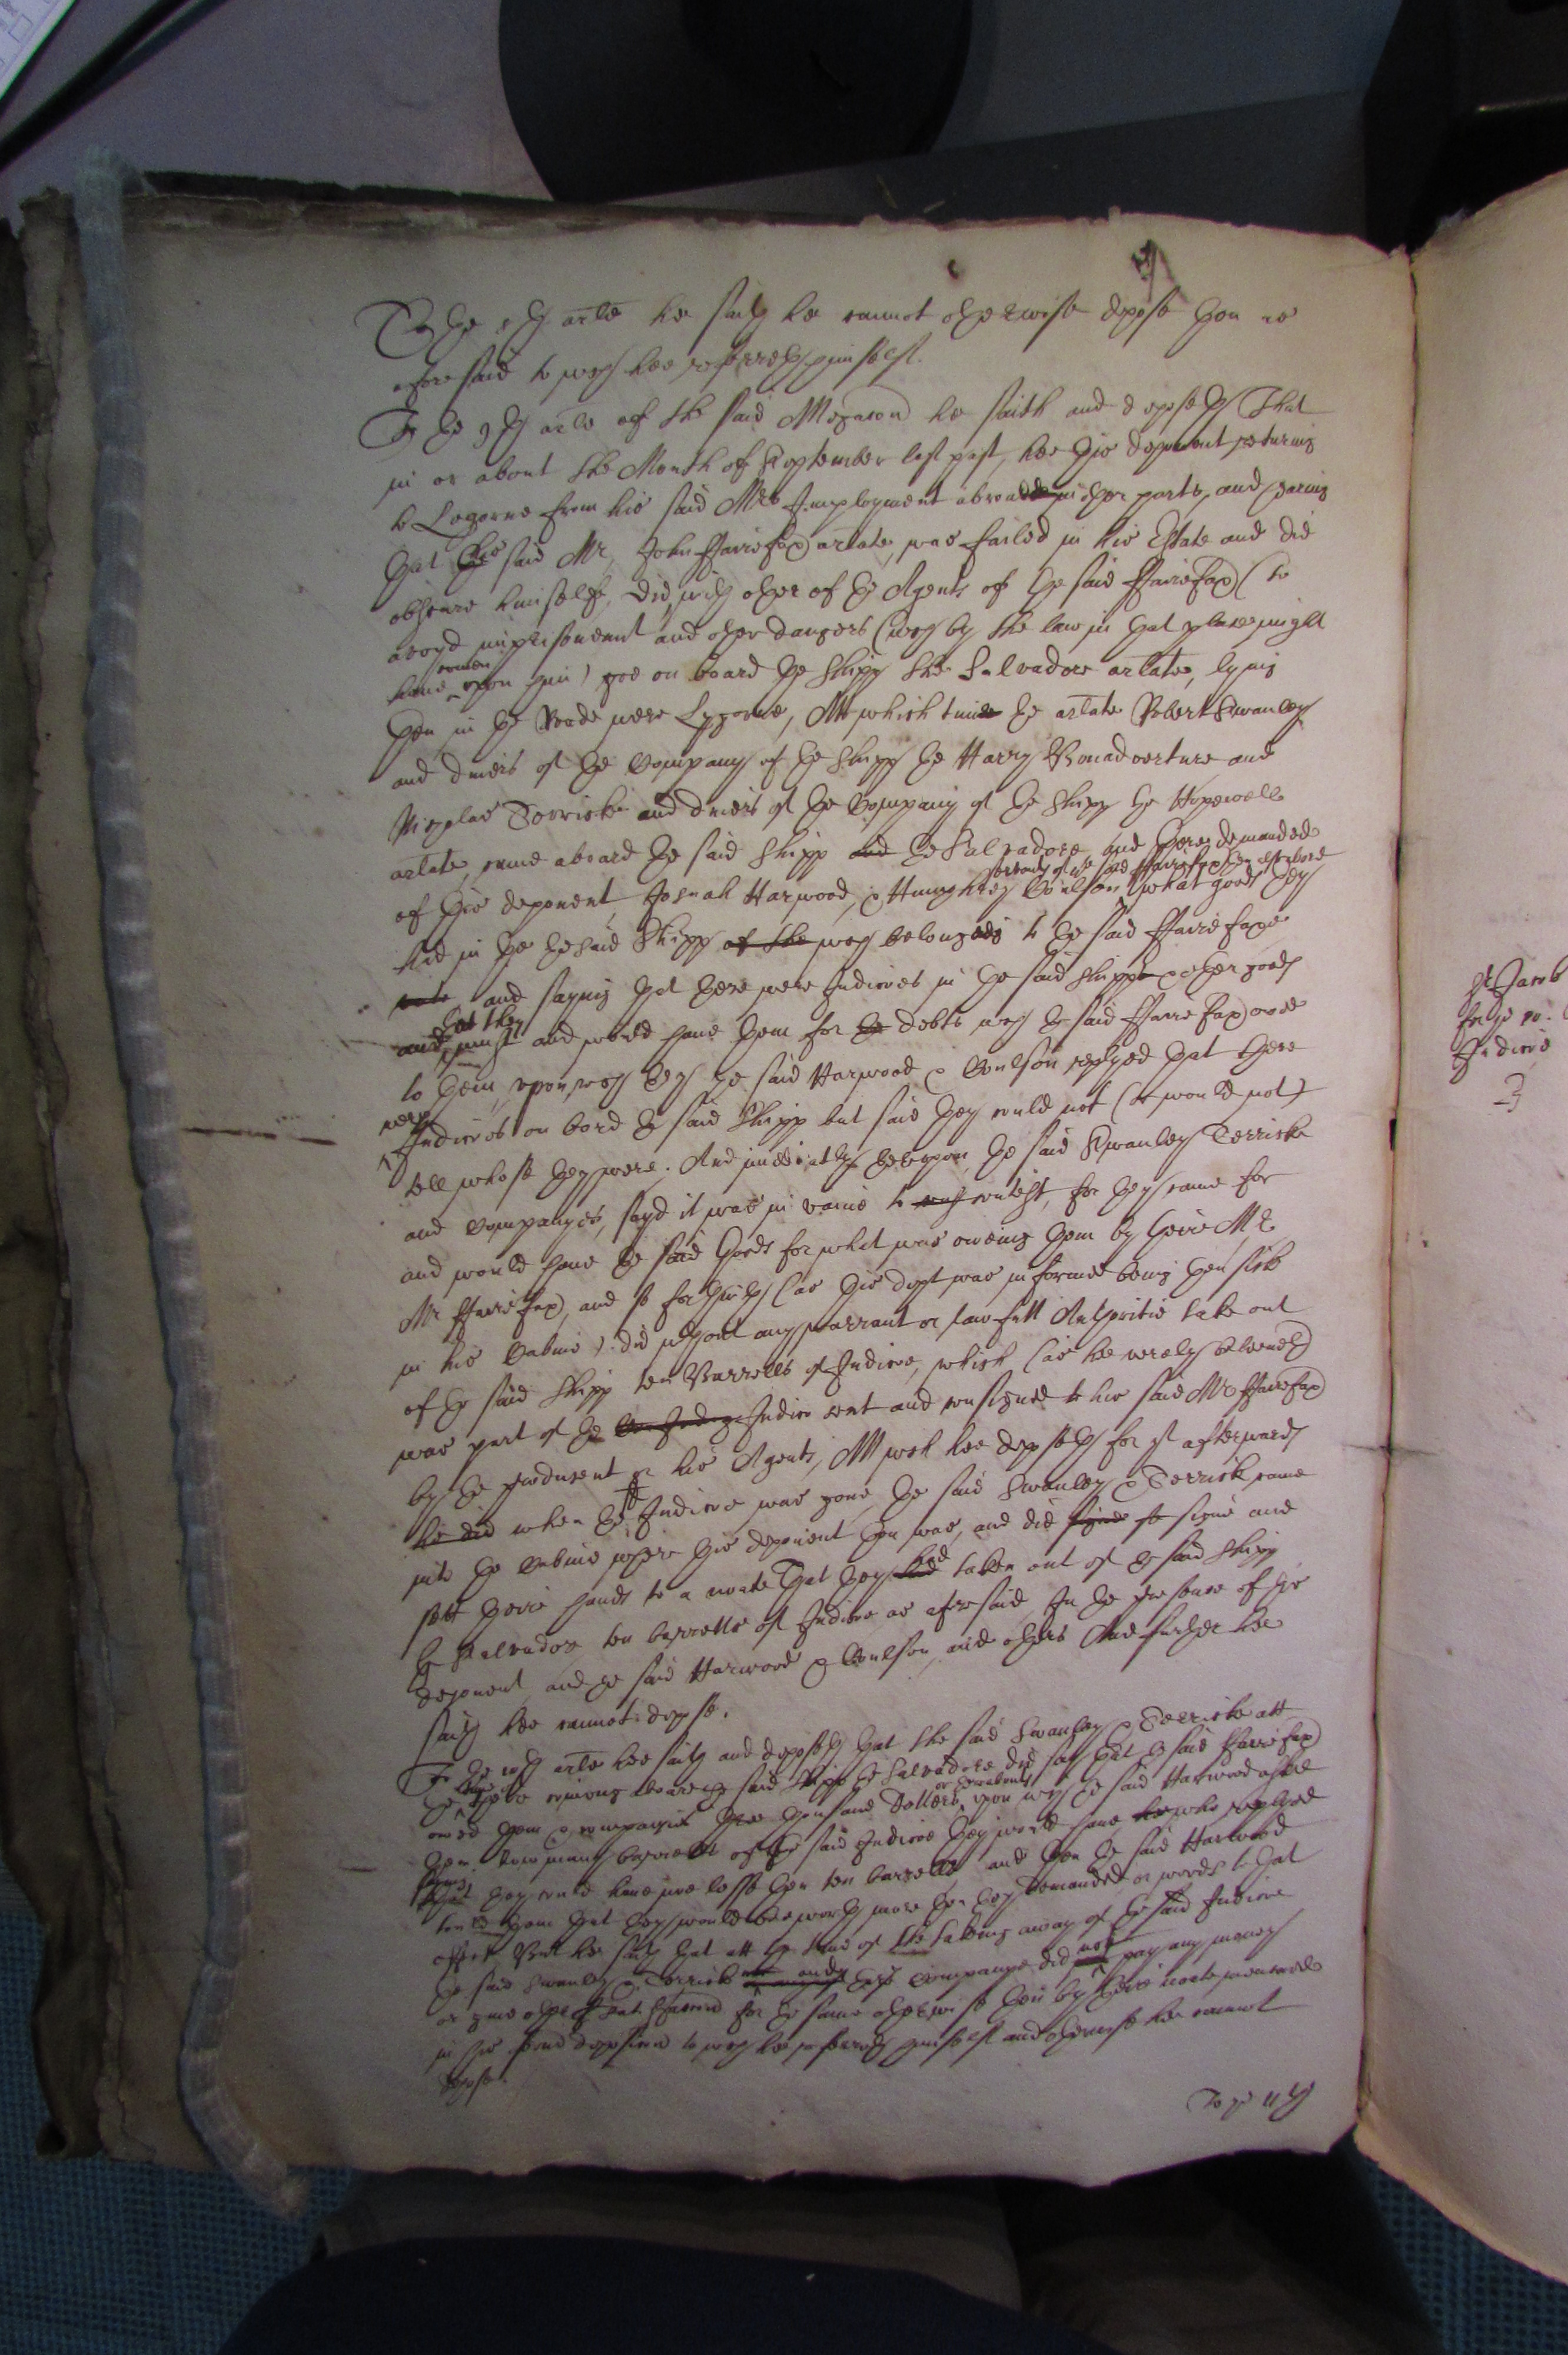 To the 8th arle hee saith hee cannot otherwise depose then as
aforesaid to wch hee referreth himselfe.
To the 9th arle of the said Allegacon he saith and deposeth That
in or about the Month of September last past, hee this deponent returning
to Legorne from his said Mrs Imployment abroade in other parts, and hearing
that his said Mr, John ffairefax arlate, was failed in his Estate and did
obscure himselfe, did with other of the Agents of the said ffairefax (to
avoyd imprisonment and other dangers (wch by the law in that place might
have comen upon him) goe on board the shipp the Salvadore arlate, lying
then in the Roade neere Legorne, Att which time the arlate Robert Swanley
and divers of the Company of the shipp the Harry Bonadventure and
Nicholas Terrick and divers of the Company of the shipp the Hopewell
arlate, came aboard the said shipp and the Salvadore and there demanded
of this deponent, Josuah Harwood, & Humphrey Coulson servants of the said ffairefax then aboard what goods they
had in the the said Shipp of the wch belonged to the said ffairefaxe
and saying that there were Indicoes in the said shippe & other goods
and that they must and would have them for the debts wch the said ffairefax owed
to them, upon wch they the said Harwood & Coulson replyed that there
were Indicoes on bord the said Shipp but said they could not (or would not)
tell whose they were. And imediately thereupon the said Swanley Terricke
and Companyes, sayd it was in vaine to contest, for they came for
and would have the said Goods for what was oweing them by theire Mr
Mr ffairefax, and so forthwith (as this dept was informed being then sick
in his Cabine) did without any warrant or lawfull Authoritie take out
of the said shipp ten Barrells of Indico, which (as hee verely beleeveth)
was part of the Indico sent and consigned to his said Mr ffairefax
by the producent or his Agents, All wch hee deposeth for that afterwards
he did when the sd Indico was gone, the said Swanley & Terrick came
into the Cabine where this deponent then was, and did signe so signe and
sett theire hands to a noate That they had had taken out of the said shipp
the Salvador ten barrells of Indico as aforesaid In the presence of this
deponent and the said Harwood & Coulson and others And further hee
saith hee cannot depose.
To the 10th arle hee saith and deposeth that the said Swanley & Terricke att
the tyme of coming aboard the said shipp the Salvadore did say that the said ffairefax
owed them & companies three thousand Dollers, or thereabouts upon wch the said Harwood asked
them how many barrells of the said Indico they would have who replyed
that they could have noe lesse then ten barrells, and then the said Harwood
tould them that they would bee worth more then they demanded, or words to that
effect But hee saith that att the time of the takeing away of the said Indico
the said Swanley & Terrick and theire Companye did not pay any money
or give other for the same otherwise then by theire noate mentioned
in his deposicon to wch hee referreth himselfe and otherwise hee cannot
depose.
To ye 11th
St Jacob
Indico